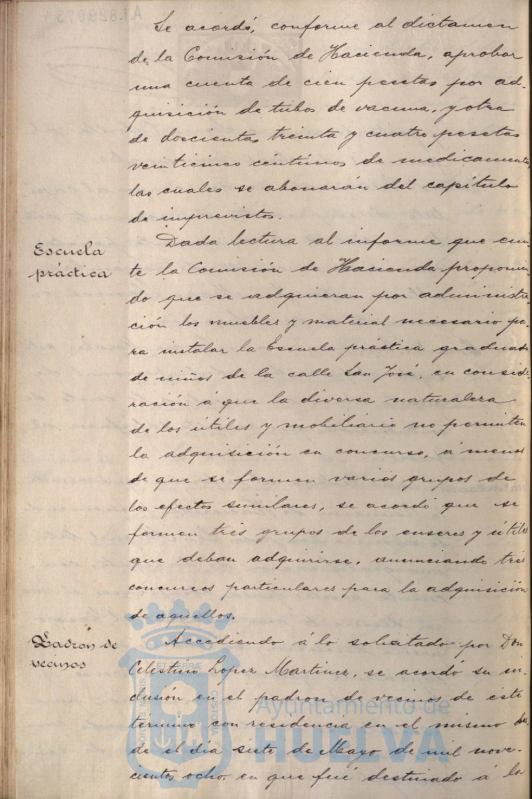 Se acordó, conforme al dictamen
de la Comisión de Hacienda, aprobar
una cuenta de cien pesetas por ad-
quisición de tubos de vacuna, y otra
de doscientas treinta y cuatro pesetas
veinticinco céntimos de medicamentos
las cuales se abonarán del capítulo
de imprevistos.
Escuela
práctica
Dada lectura al informe que emi-
te la Comisión de Hacienda proponien-
do que se adquieran por administra-
ción los muebles y material necesario pa-
ra instalar la Escuela práctica graduada
de niños de la calle San José, en conside-
ración á que la diversa naturaleza
de los útiles y mobiliario no permiten
la adquisición en concurso, á menos
de que se formen varios grupos de
los efectos similares, se acordó que se
formen tres grupos de los enseres y útiles
que deban adquirirse, anunciando tres
concursos particulares para la adquisición
de aquellos.
Padrón de
vecinos
Accediendo á lo solicitado por Don
Celestino Lopez Martinez, se acordó su in-
clusión en el padron de vecinos de este
termino con residencia en el mismo des-
de el día siete de Mayo de mil nove-
cientos ocho, en que fué destinado á la
Ayuntamiento de
HUELVA